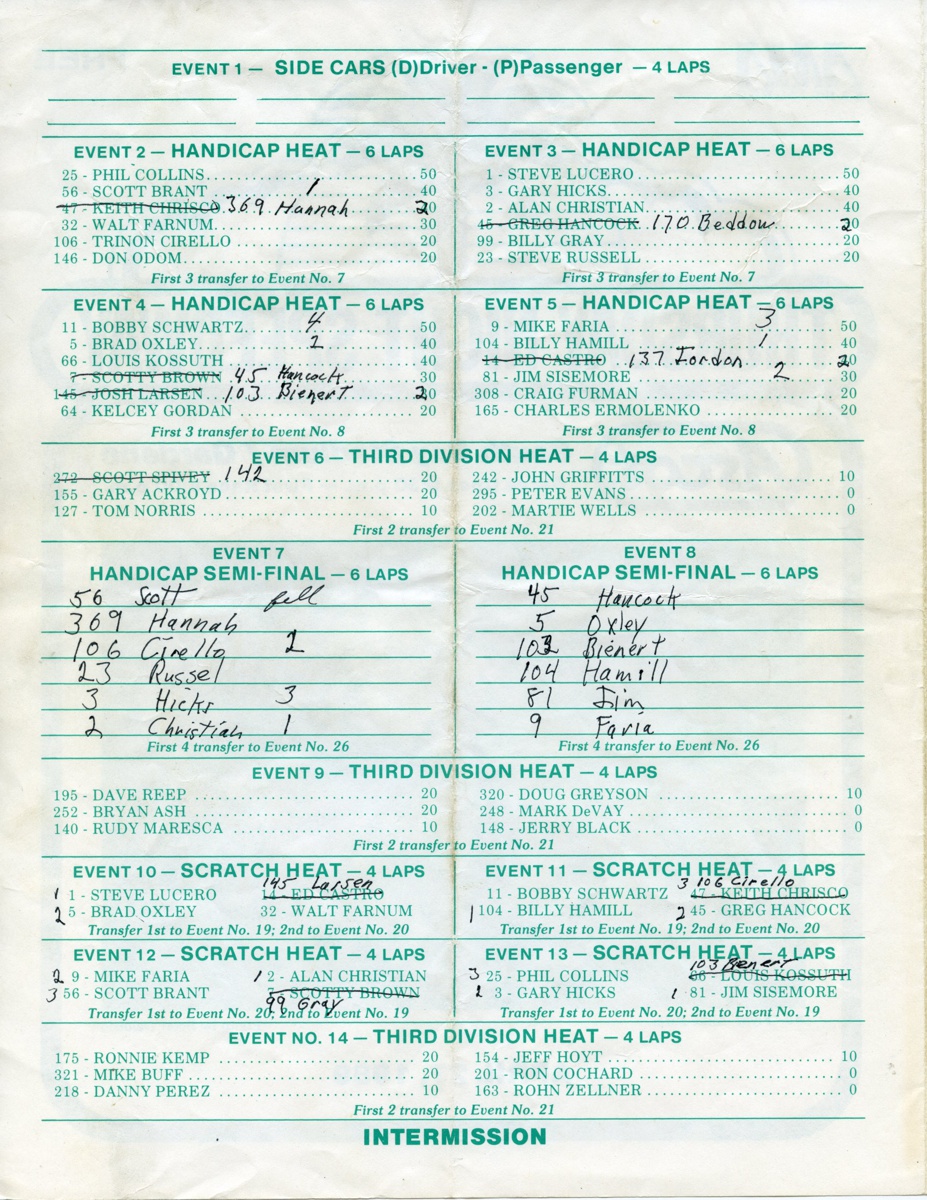 EVENT 1 — SIDE CARS (D)Driver - (P)Passenger — 4 LAPS
EVENT 2 — HANDICAP HEAT — 6 LAPS
25 - PHIL COLLINS 50
56 - SCOTT BRANT 1 40
47 - KEITH CHRISCO 369 Hannah 20
32 - WALT FARNUM 30
106 - TRINON CIRELLO 20
146 - DON ODOM 20
First 3 transfer to Event No. 7
EVENT 3 — HANDICAP HEAT — 6 LAPS
1 - STEVE LUCERO 50
3 - GARY HICKS 40
2 - ALAN CHRISTIAN 40
45 - GREG HANCOCK 170 Beddow 20
99 - BILLY GRAY 20
23 - STEVE RUSSELL 20
First 3 transfer to Event No. 7
EVENT 4 — HANDICAP HEAT — 6 LAPS
11 - BOBBY SCHWARTZ 4 50
5 - BRAD OXLEY 2 40
66 - LOUIS KOSSUTH 40
7 - SCOTTY BROWN 45 Hancock 30
145 - JOSH LARSEN 103 Bienert 20
64 - KELCEY GORDAN 20
First 3 transfer to Event No. 8
EVENT 5 — HANDICAP HEAT — 6 LAPS
9 - MIKE FARIA 3 50
104 - BILLY HAMILL 1 40
14 - ED CASTRO 137 Fordon 20
81 - JIM SISEMORE 2 30
308 - CRAIG FURMAN 20
165 - CHARLES ERMOLENKO 20
First 3 transfer to Event No. 8
EVENT 6 — THIRD DIVISION HEAT — 4 LAPS
272 - SCOTT SPIVEY 142 20
155 - GARY ACKROYD 20
127 - TOM NORRIS 10
242 - JOHN GRIFFITTS 10
295 - PETER EVANS 0
202 - MARTIE WELLS 0
First 2 transfer to Event No. 21
EVENT 7
HANDICAP SEMI-FINAL — 6 LAPS
56 Scott fell
369 Hannah
106 Cirello 2
23 Russel
3 Hicks 3
2 Christian 1
First 4 transfer to Event No. 26
EVENT 8
HANDICAP SEMI-FINAL — 6 LAPS
45 Hancock
5 Oxley
103 Bienert
104 Hamill
81 Jim
9 Faria
First 4 transfer to Event No. 26
EVENT 9 — THIRD DIVISION HEAT — 4 LAPS
195 - DAVE REEP 20
252 - BRYAN ASH 20
140 - RUDY MARESCA 10
320 - DOUG GREYSON 10
248 - MARK DeVAY 0
148 - JERRY BLACK 0
First 2 transfer to Event No. 21
EVENT 10 — SCRATCH HEAT — 4 LAPS
145 Larsen
1 1 - STEVE LUCERO 14 - ED CASTRO
2 5 - BRAD OXLEY 32 - WALT FARNUM
Transfer 1st to Event No. 19; 2nd to Event No. 20
EVENT 11 — SCRATCH HEAT — 4 LAPS
3 106 Cirello
11 - BOBBY SCHWARTZ 47 - KEITH CHRISCO
1 104 - BILLY HAMILL 2 45 - GREG HANCOCK
Transfer 1st to Event No. 19; 2nd to Event No. 20
EVENT 12 — SCRATCH HEAT — 4 LAPS
2 9 - MIKE FARIA 1 2 - ALAN CHRISTIAN
3 56 - SCOTT BRANT 7 - SCOTTY BROWN
99 Gray
Transfer 1st to Event No. 20; 2nd to Event No. 19
EVENT 13 — SCRATCH HEAT — 4 LAPS
103 Bienert
3 25 - PHIL COLLINS 66 - LOUIS KOSSUTH
2 3 - GARY HICKS 1 81 - JIM SISEMORE
Transfer 1st to Event No. 20; 2nd to Event No. 19
EVENT NO. 14 — THIRD DIVISION HEAT — 4 LAPS
175 - RONNIE KEMP 20
321 - MIKE BUFF 20
218 - DANNY PEREZ 10
154 - JEFF HOYT 10
201 - RON COCHARD 0
163 - ROHN ZELLNER 0
First 2 transfer to Event No. 21
INTERMISSION